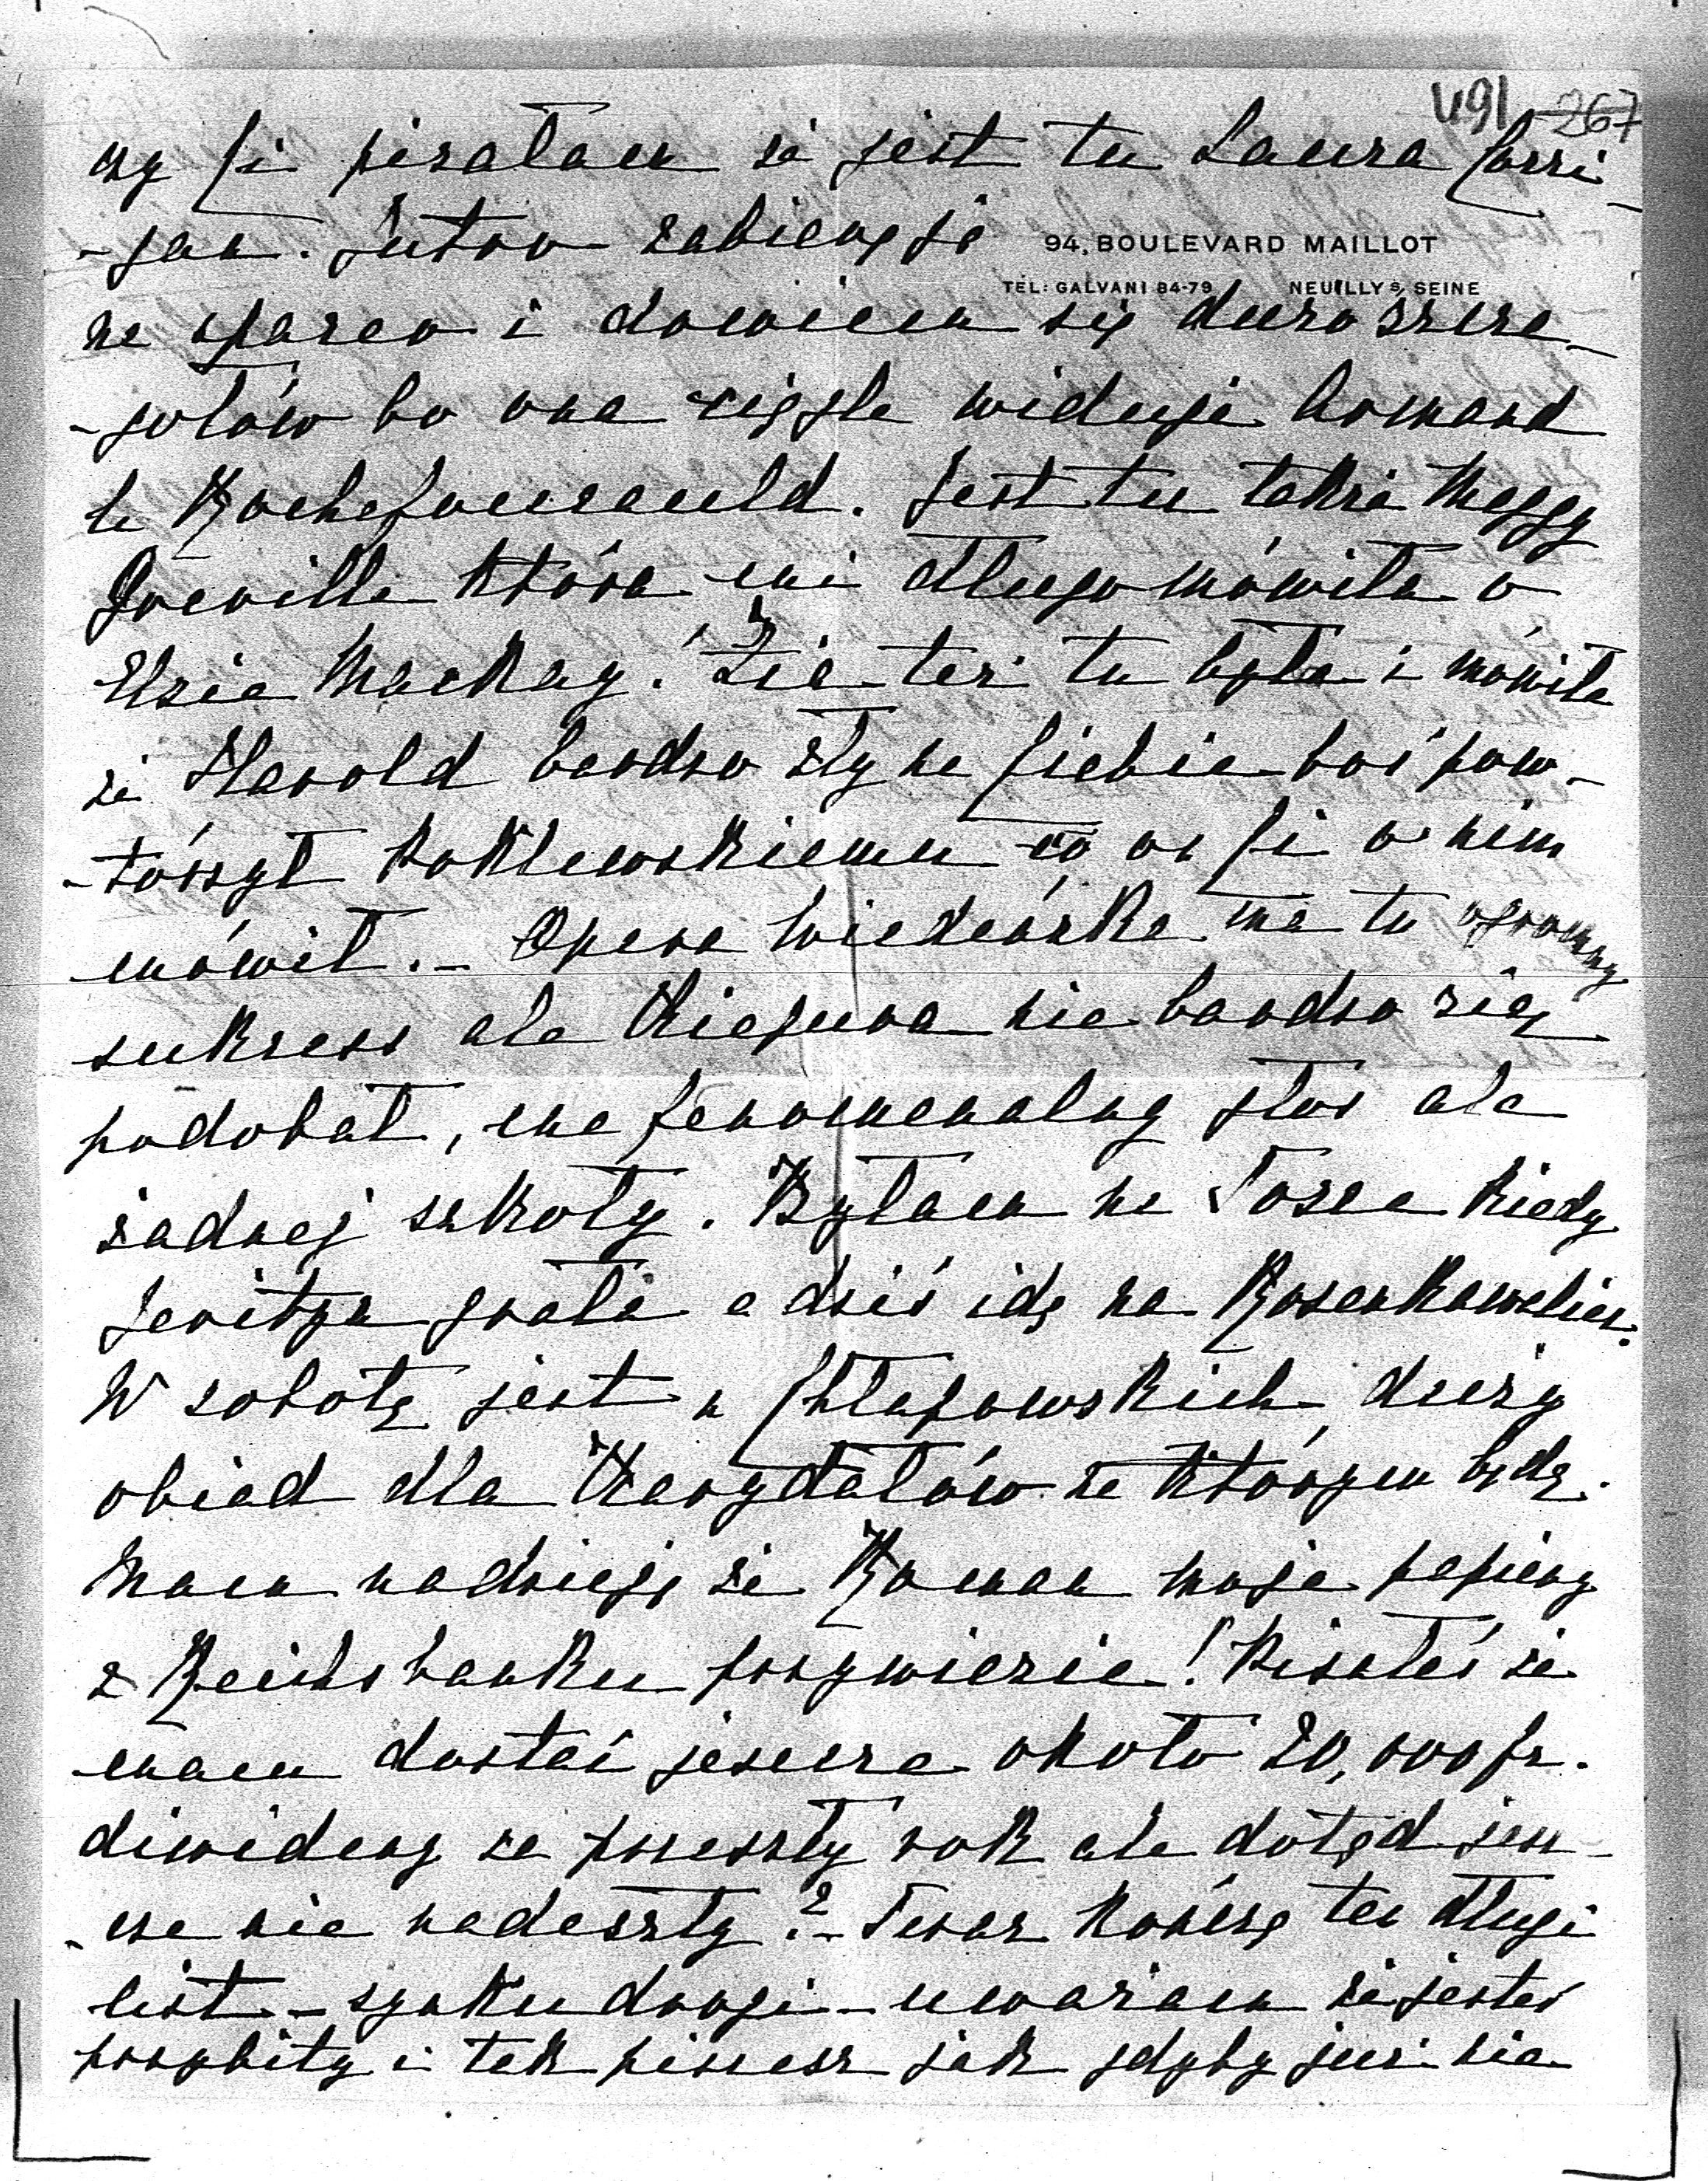 491 267
czy Ci pisałam że jest tu Laura Corri-
-gan. Jutro zabieram ją
94, BOULEVARD MAILLOT
TÉL: GALVANI 84-79 NEUILLY S/ SEINE
na i dowiem się dużo szcze-
-gółów bo ona ciągle widuje Armand
la Rochefoucauld. Jest tu także Meggy
Greville która mi długo mówiła o
Elsie MacKay. Zia też tu była i mówiła
że Harold bardzo zły na Ciebie boś pow-
-tórzył Koklewskiemu co on Ci o nim
mówił. - Opera Wiedeńska ma tu ogromny
sukcess ale Kiepura nie bardzo się
podobał, ma fenomenalny głos ale
żadnej szkoły. Byłam na Tosca kiedy
Jeritza grała a dziś idę na Rosenkawelier.
W sobotę jest u Chłapowskich duży
obiad dla Kardynałów na którym będę.
Mam nadzieję że Roman moje papiery
z Reichsbanku przywiezie! Pisałeś że
mam dostać jeszcze około 20,000 fr.
diwidendy za przeszły rok ale dotąd jesz-
-cze nie nadeszły? - Teraz kończę ten długi
list - synku drogi - uważam że jesteś
przybity i tak piszesz jak gdyby już nie